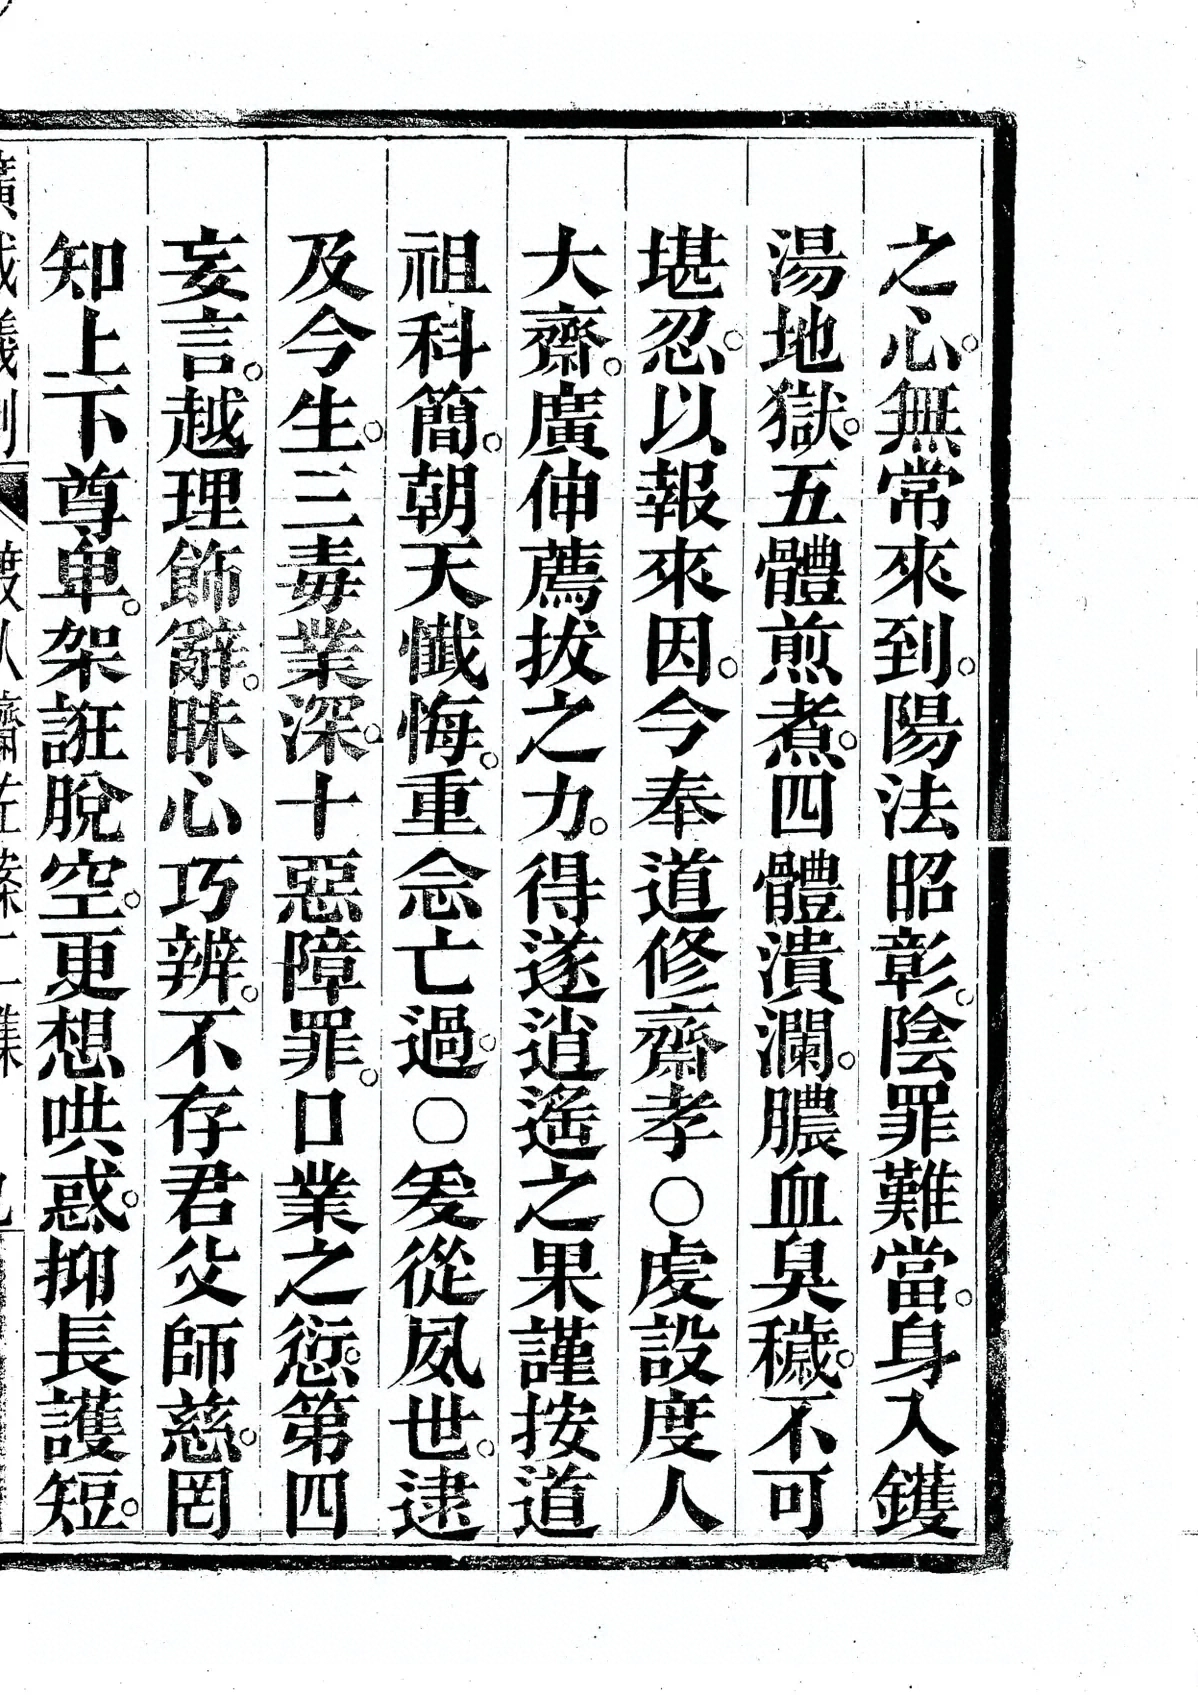 之心。無常來到。陽法昭彰。陰罪難當。身入鑊
湯地獄。五體煎煮。四體潰瀾。膿血臭穢。不可
堪忍。以報來因。今奉道修齋孝○虔設度人
大齋。廣伸薦拔之力。得遂逍遙之果謹按道
祖科簡。朝天懺悔。重念亡過。○爰從夙世。逮
及今生。三毒業深。十惡障罪。口業之愆。第四
妄言。越理飾辭。昧心巧辨。不存君父師慈。罔
知上下尊卑。架誑脫空。更想哄惑。抑長護短。